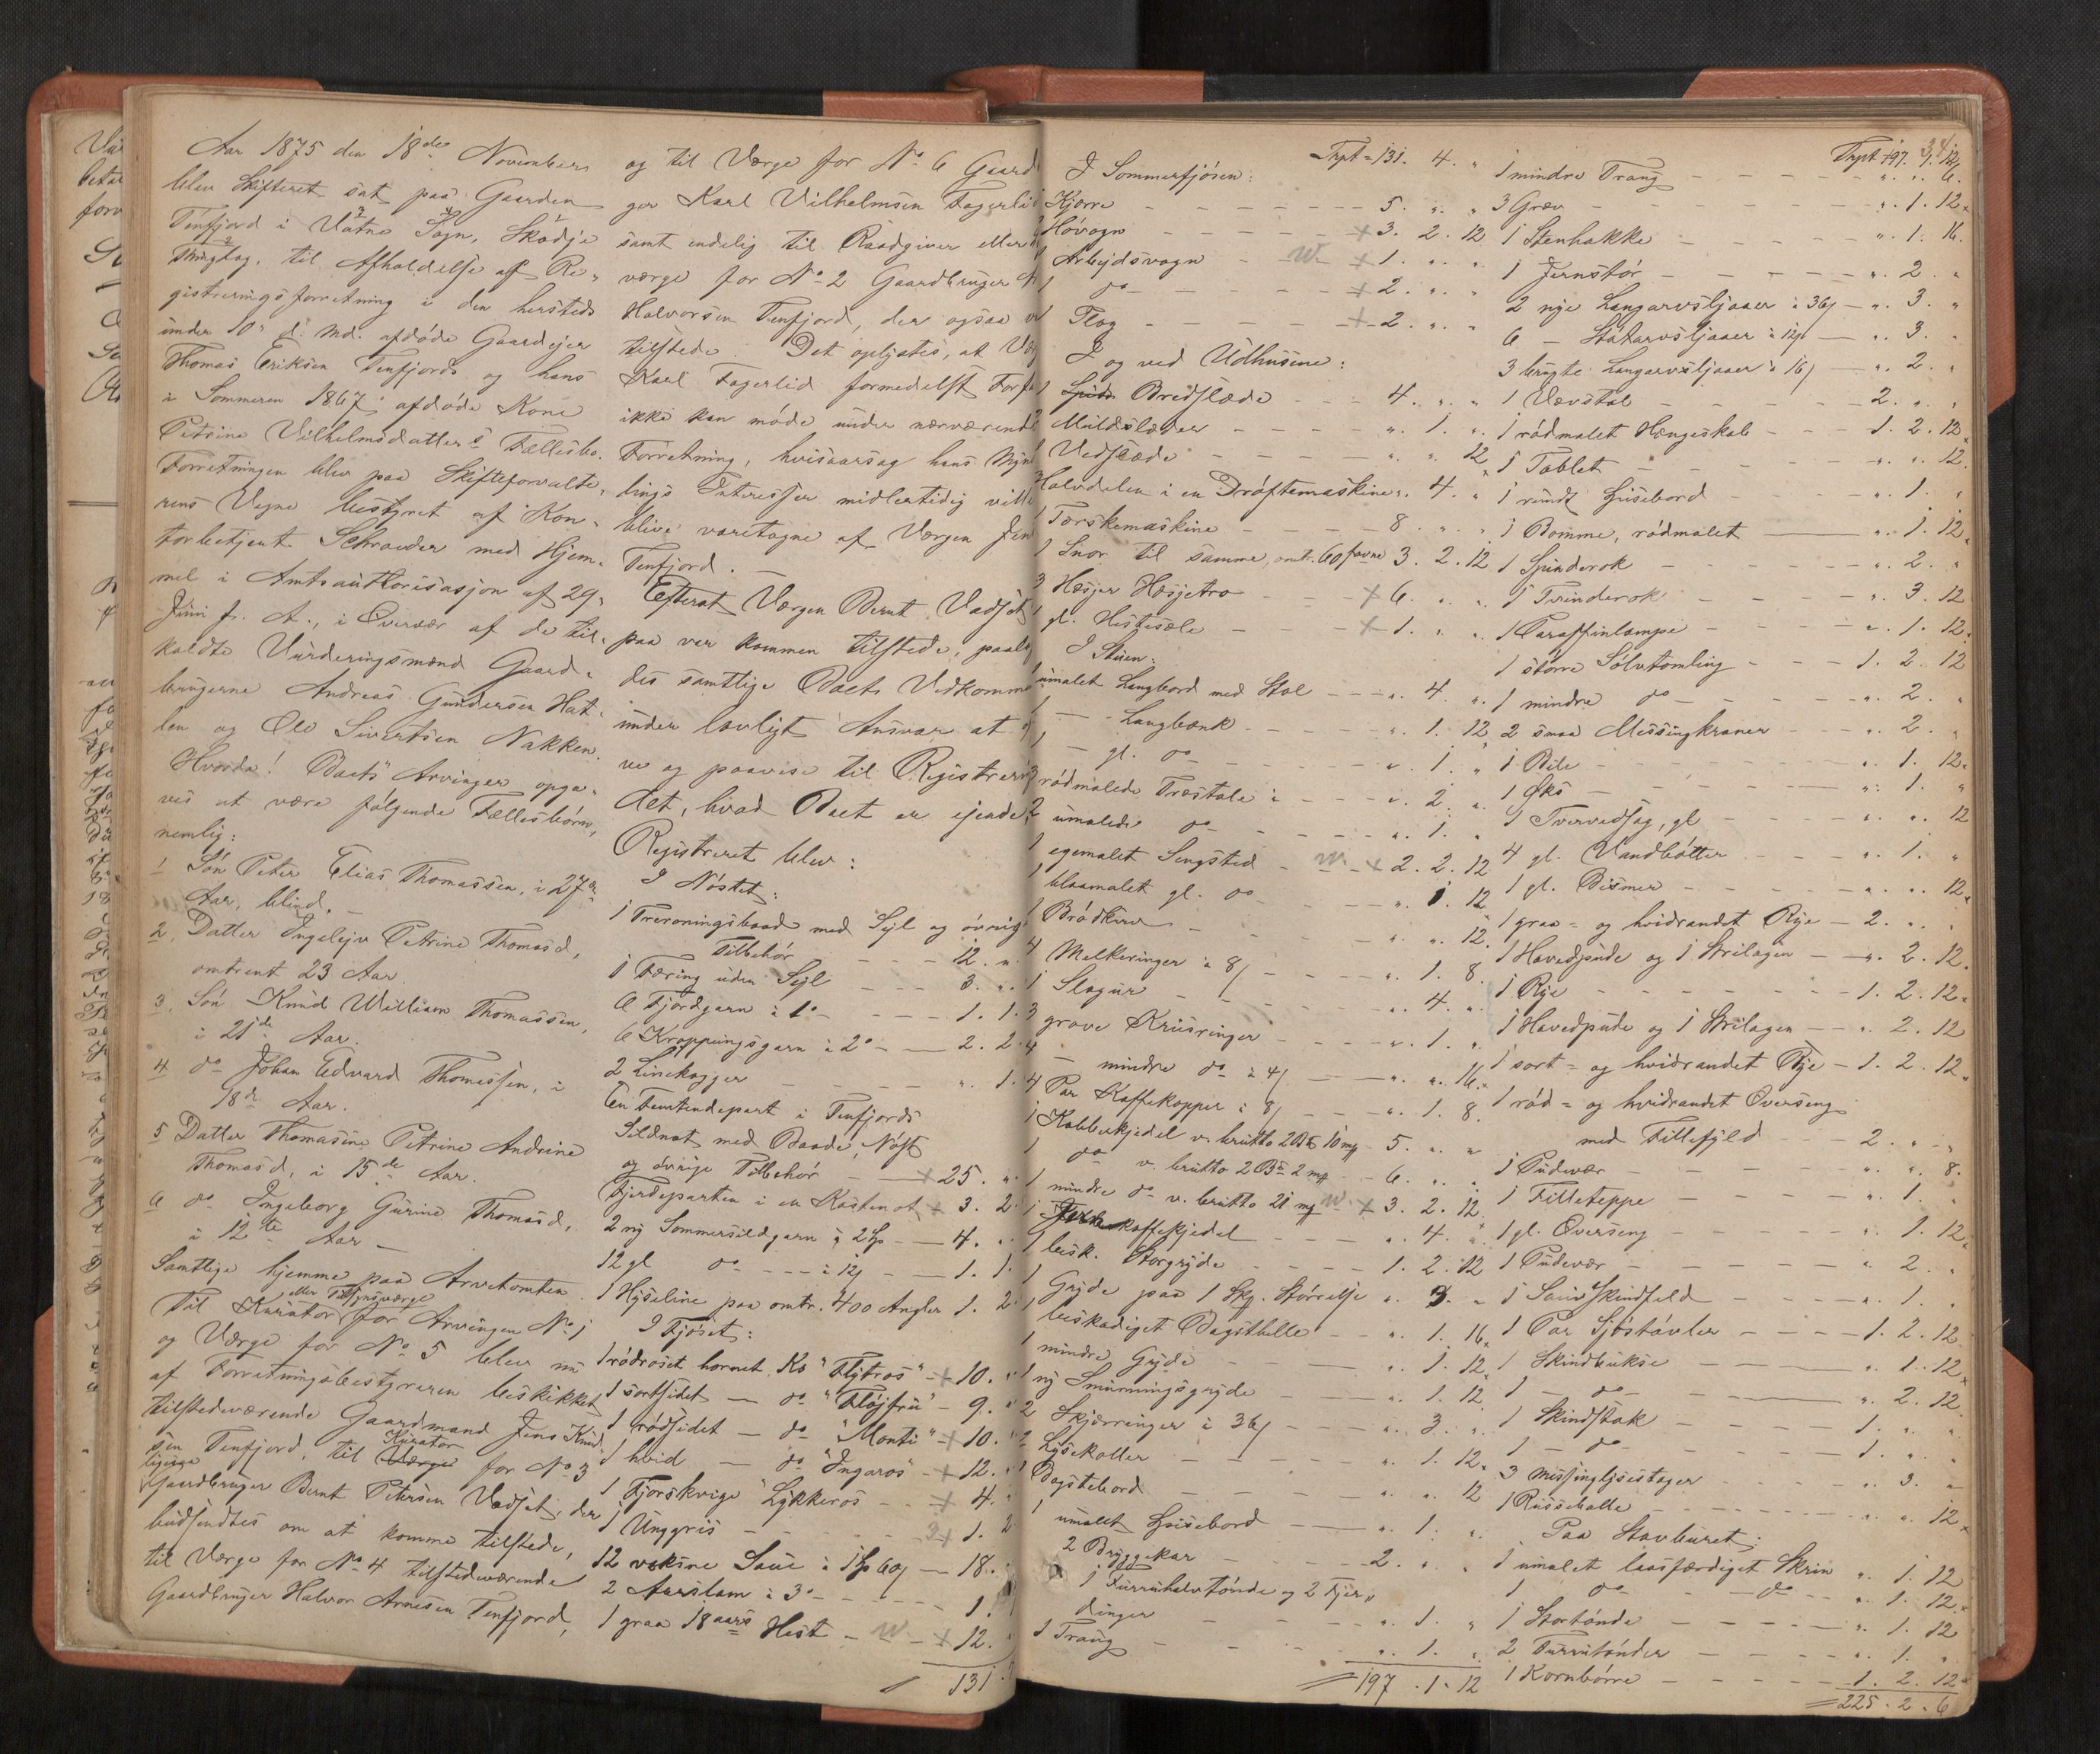 Aar 1875 den 18de November
blev Skifteret sat paa Gaarden
Tenfjord i Vatne Sogn, Skodje
Thinglag, til Afholdelse af Re-
gistreringsforretning i den hersteds
under 10de d. Md. afdöde Gaardejer
Thomas Eriksen Tenfjords og hans
i Sommeren 1867 afdöde Kone
Petrine Vilhelmsdatters Fællesbo.
Forretningen blev paa Skifteforvalte-
rens Vegne bestyret af Kon-
torbetjent Schroeder med Hjem-
mel i Amtsauthorisasjon af 29
Juni f. A., i Overvær af de til-
kaldte Vurderingsmænd Gaard-
brugerne Andreas Gundersen Hat-
len og Ole Sivertsen Nakken.
Hvorda! Boets Arvinger opga-
ves at være fölgende Fællesbörn,
nemlig:
1 Sön Peter Elias Thomassen, i 27de
Aar, blind.
2, Datter Ingelejv Petrine Thomasd,
omtrent 23 Aar.
3, Sön Knud William Thomassen,
i 21de Aar.
4 do Johan Edvard Thomassen, i
18de Aar.
5 Datter Thomasine Petrine Andrine
Thomasd, i 15de Aar.
6 do Ingeborg Gurine Thomasd,
i 12te Aar
Samtlige hjemme paa Arvetomten.
eller Tilsynsværge
Til Kurator for Arvingen No 1
og Værge for No 5 blev nu
af Forretningsbestyreren beskikket
tilstedeværende Gaardmand Jens Knud-
Kurator
sen Tenfjord, til Værge for No 3
ligesaa
Gaardbruger Bernt Petersen Vadset, der
budsendtes om at komme tilstede,
til Værge for No 4 tilstedeværende
Gaardbruger Halvor Arnesen Tenfjord,
og til Værge for No 6 Gaard
ger Karl Vilhelmsen Fagerli
samt endelig til Raadgiver eller
værge for No 2 Gaardbruger
Halvorsen Tenfjord, der ogsaa v
tilstede. Det oplystes, at Vær
Karl Fagerlid formedelst Forfa
ikke kan möde under nærværende
Forretning, hvisaarsag hans Mynd
lings Interesser midlertidig ville
blive varetagne af Værgen Jen
Tenfjord.
Efterat Værgen Bernt Vadset
paa var kommen tilstede, paalag
des samtlige Boets Vedkomme
under lovligt Ansvar at
ve og paavise til Registreri
det, hvad Boet er ejende,
Registreret blev:
I Nöstet:
1 Treroningsbaad med Sejl og övrig
Tilbehör - - - 12. "
1 Færing uden Sejl - - - 3. "
6 Fjordgarn à 1o - - - 1. 1.
6 Kropningsgarn à 2o - - 2. 2
2 Linekagger - - - " 1.
En Femtendepart i Tenfjords
Sildnot med Baade, Nöst
og övrige Tilbehör + 25. "
Fjerdeparten i en Kastenot, + 3. 2
2 ny Sommersildgarn à 2 Sp - 4. "
12 gl do - - à 12ß - 1. 1.
1 Hyseline paa omtr. 400 Angler 1. 2
I Fjöset:
1 rödroset hornet Ko "Fljtros" + 10. "
1 sortsidet - do "Flöjfru" - 9. "
1 rödsidet - do "Monti" + 10. "
1 hvid - do "Ingaros" + 12. "
1 Fjorskvige "Lykkeros" - + 4. "
1 Unggris - - - 1. 2
12 voksne Saue à 1 Sp 60ß - 18.
2 Aarslam à 3o - - - 1.
1 graa 18 aars Hest - + 12. "
131.
34
Trpt = 131. 4. "
I Sommerfjösen:
Kjærre - - - 5. " "
Hövogn - - - + 3. 2. 12
Arbejdsvogn - - + 1. " "
1 do - - - + 2. " "
1 Plog - - - + 2. " "
I og ved Udhusene:
1 Bredslæde - - 4. " "
Muldslæder - - " 1. "
Vedslæde - - " " 12
Halvdelen i en Dröftemaskine " 4. "
1 Tærskemaskine - - 8. " "
1 Snor til samme, omtr. 60 favne 3. 2. 12
3 Hæsjer Hæsjetro - + 6. " "
1 gl. Hestesæle - + 1. " "
I Stuen:
1 umalet Langbord med Stol - " 4. "
1 - Langbænk - " 1. 12
1 - gl. do - " 1. "
3 rödmalede Træstole à - " 2. "
2 umalede do - " 1. "
1 egemalet Sengsted - + 2. 2. 12
1 blaamalet gl. do - " 1. 12
1 Brödkurv - " " 12
4 Melkeringer à 8ß - " 1. 8
1 Slagur - " 4. "
3 grove Krusringer - " 1. "
4 - mindre do à 4ß - " " 16
4 Par Kaffekopper à 8ß - " 1. 8
1 Kobberkjedel v. brutto 2 Bpd 10 mk - 5. " "
1 do v. brutto 2 Bpd 2 mk - 6. " "
1 mindre do v. brutto 21 mk + 3. 2. 12
1 kaffekjedel - " 4. "
1 besk. Storgryde - 1. 2. 12
1 Gryde paa 1 Skp. Störrelse " 3. "
1 beskadiget Bagsthelle - " 1. 16
1 mindre Gryde - " 1. 12
1 ny Smurningsgryde - " 1. 12
2 Skjærringer à 36ß - " 3. "
2 Lysekoller - " 1. 12
1 Bagstebord - " " 12
1 umalet Spisebord - " 1. "
2 Bryggekar - 2. " "
1 Furruhalvtönde og 2 Fjer-
dinger - " 1. "
1 Traug - " 1. "
197. 1. 12
Trpt 197. 1. 12
1 mindre Traug - " " 6.
3 Græv - " 1. 12
1 Stenhakke - " 1. 16.
1 Jernstör - " 2. "
2 nye Langarvsljaaer à 36ß - " 3. "
6 - Stutarvsljaaer à 12ß - " 3. "
3 brugte Langarvsljaaer à 16ß - " 2. "
1 Vævstol - 2. " "
1 rödmalet Hængeskab - 1. 2. 12
1 Tablet - " " 12
1 rundt Spisebord - " 1. "
1 Bomme, rödmalet - " 1. 12
1 Spinderok - " 2. "
1 Tvinderok - " 3. 12
1 Paraffinlampe - " 1. 12
1 större Sölvtomling - 1. 2. 12
1 mindre do - " 2. "
2 smaa Messingkraner - " 2. "
1 Bile - " 1. 12
1 Øks - " 1. "
1 Tvervedsag, gl - " " 12
4 gl. Vandbötter - " 1. "
1 gl. Bismer - " " 12
1 graa- og hvidrandet Rye - 2. " "
1 Hovedpude og 1 Strilagen - " 2. 12
1 Rye - 1. 2. 12
1 Hovedpude og 1 Strilagen - " 2. 12
1 sort- og hvidrandet Rye - 1. 2. 12
1 röd- og hvidrandet Overseng
med Fillefyld - 2. " "
1 Pudevær - " " 8.
1 Filleteppe - " 1. "
1 gl. Overseng - " 1. 12
1 Pudevær - " 2. "
1 Saueskindfeld - " 1. "
1 Par Sjöstövler - 1. 2. 12
1 Skindbukse - " 1. 12
1 - do - " 2. 12
1 Skindstak - 1. " "
1 - do - 1. " "
3 Messinglysestager - " 3. "
1 Russebolle - " " 12
Paa Stavburet:
1 umalet laasfærdiget Skrin " 1. 12
1 do - do - " 1. 12
1 Stortönde - " 1. 12
2 Furrutönder - " 1. "
1 Kornbörre - 1. 2. 12
225. 2. 6